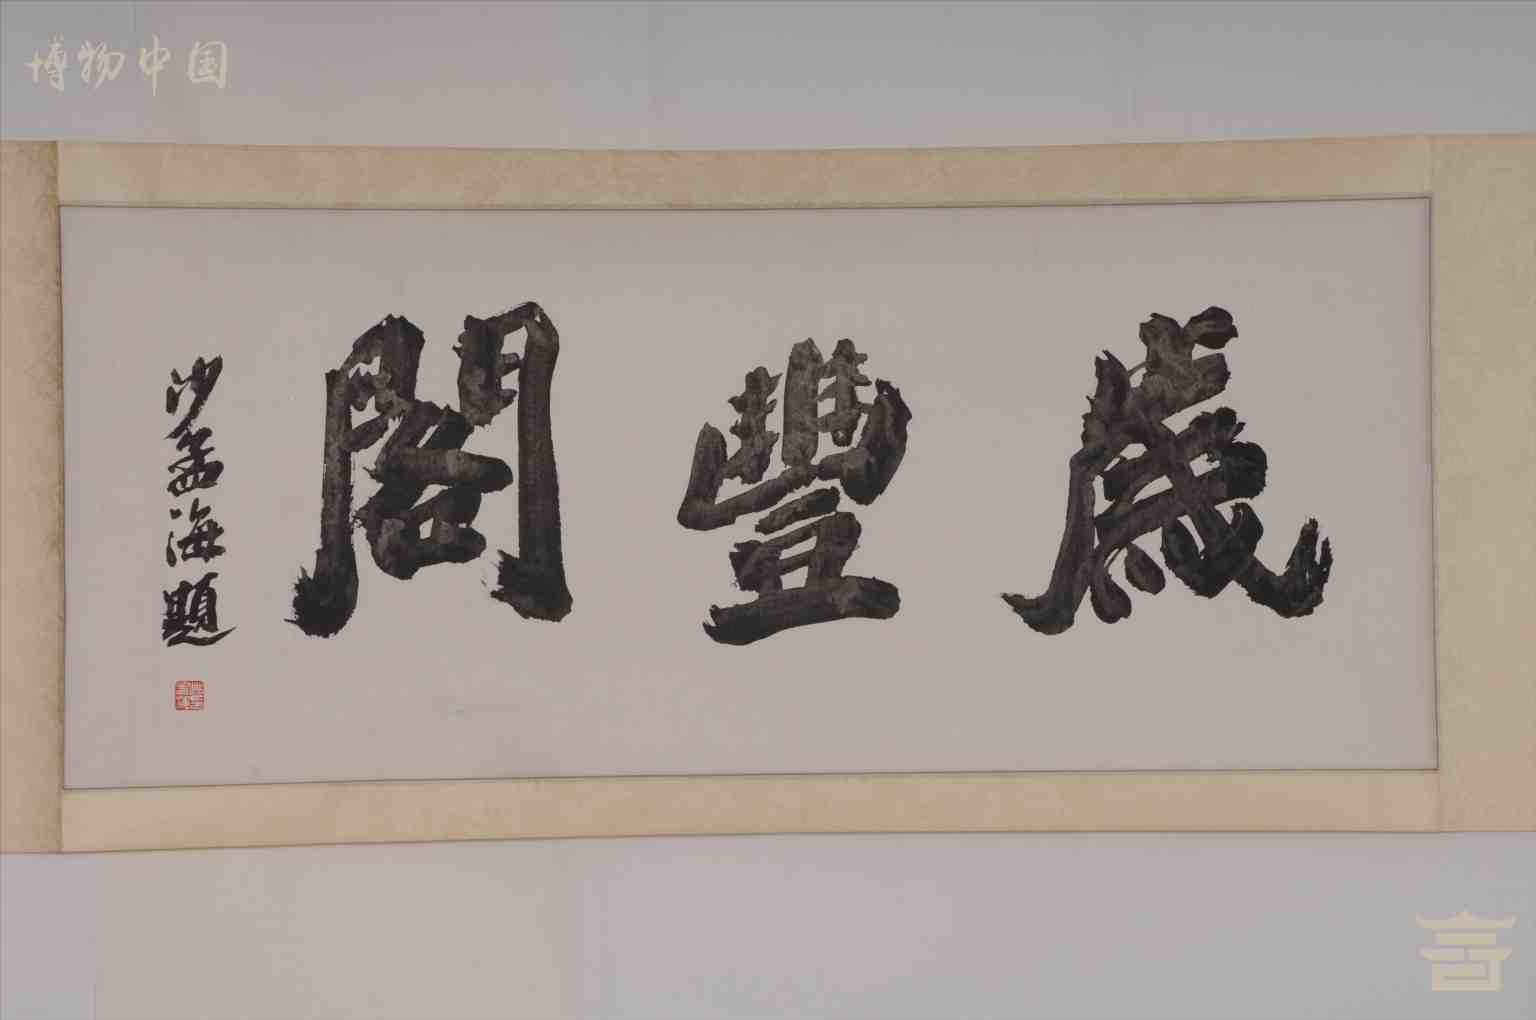 博物中国
歲豐閣
沙孟海題